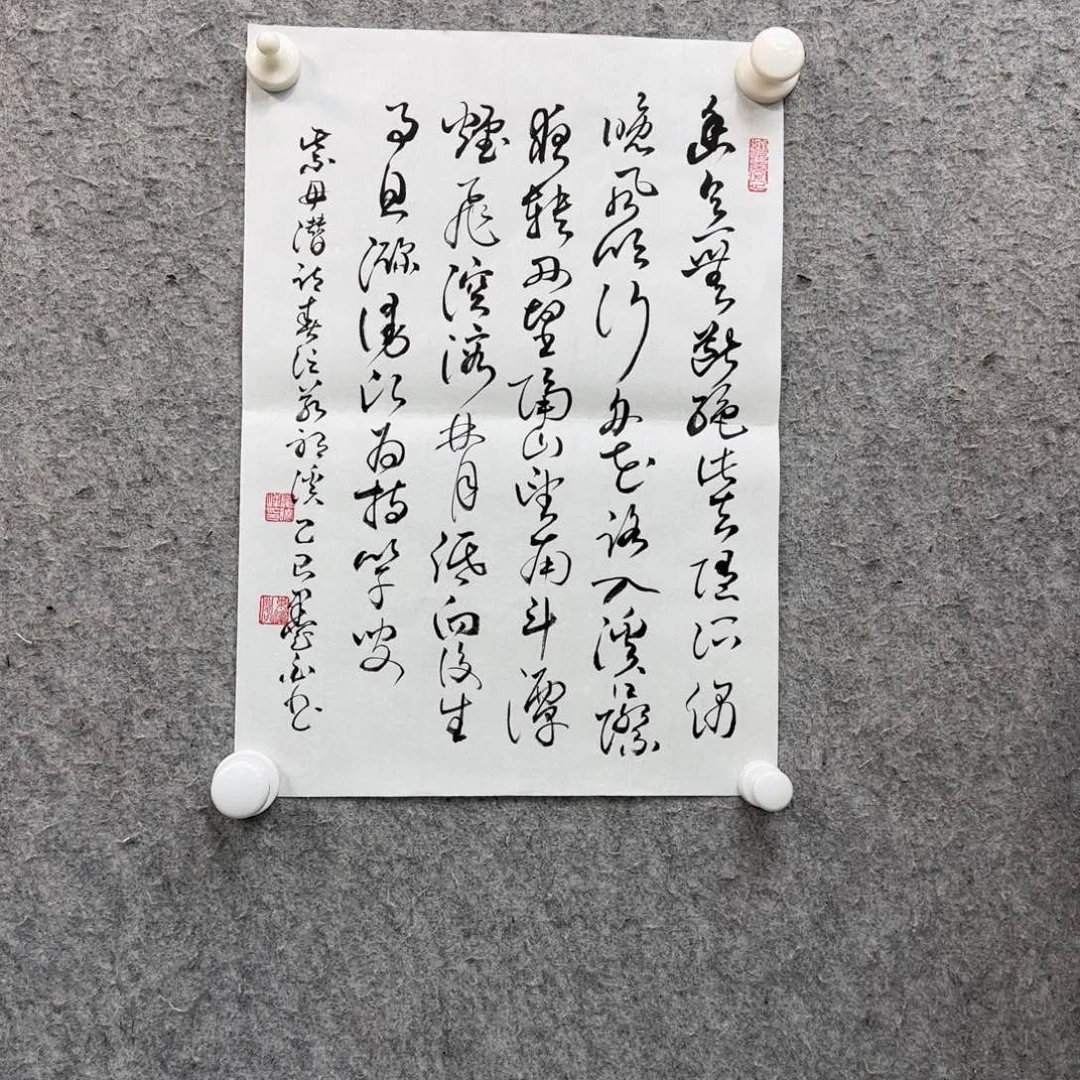 幽意無斷絕此去隨所偶
晚風吹行舟花路入溪口際
夜轉西壑隔山望南斗潭
煙飛溶溶林月低向後生
事且瀰漫願為持竿叟
綦毋潛詩春泛若耶溪 乙巳 書